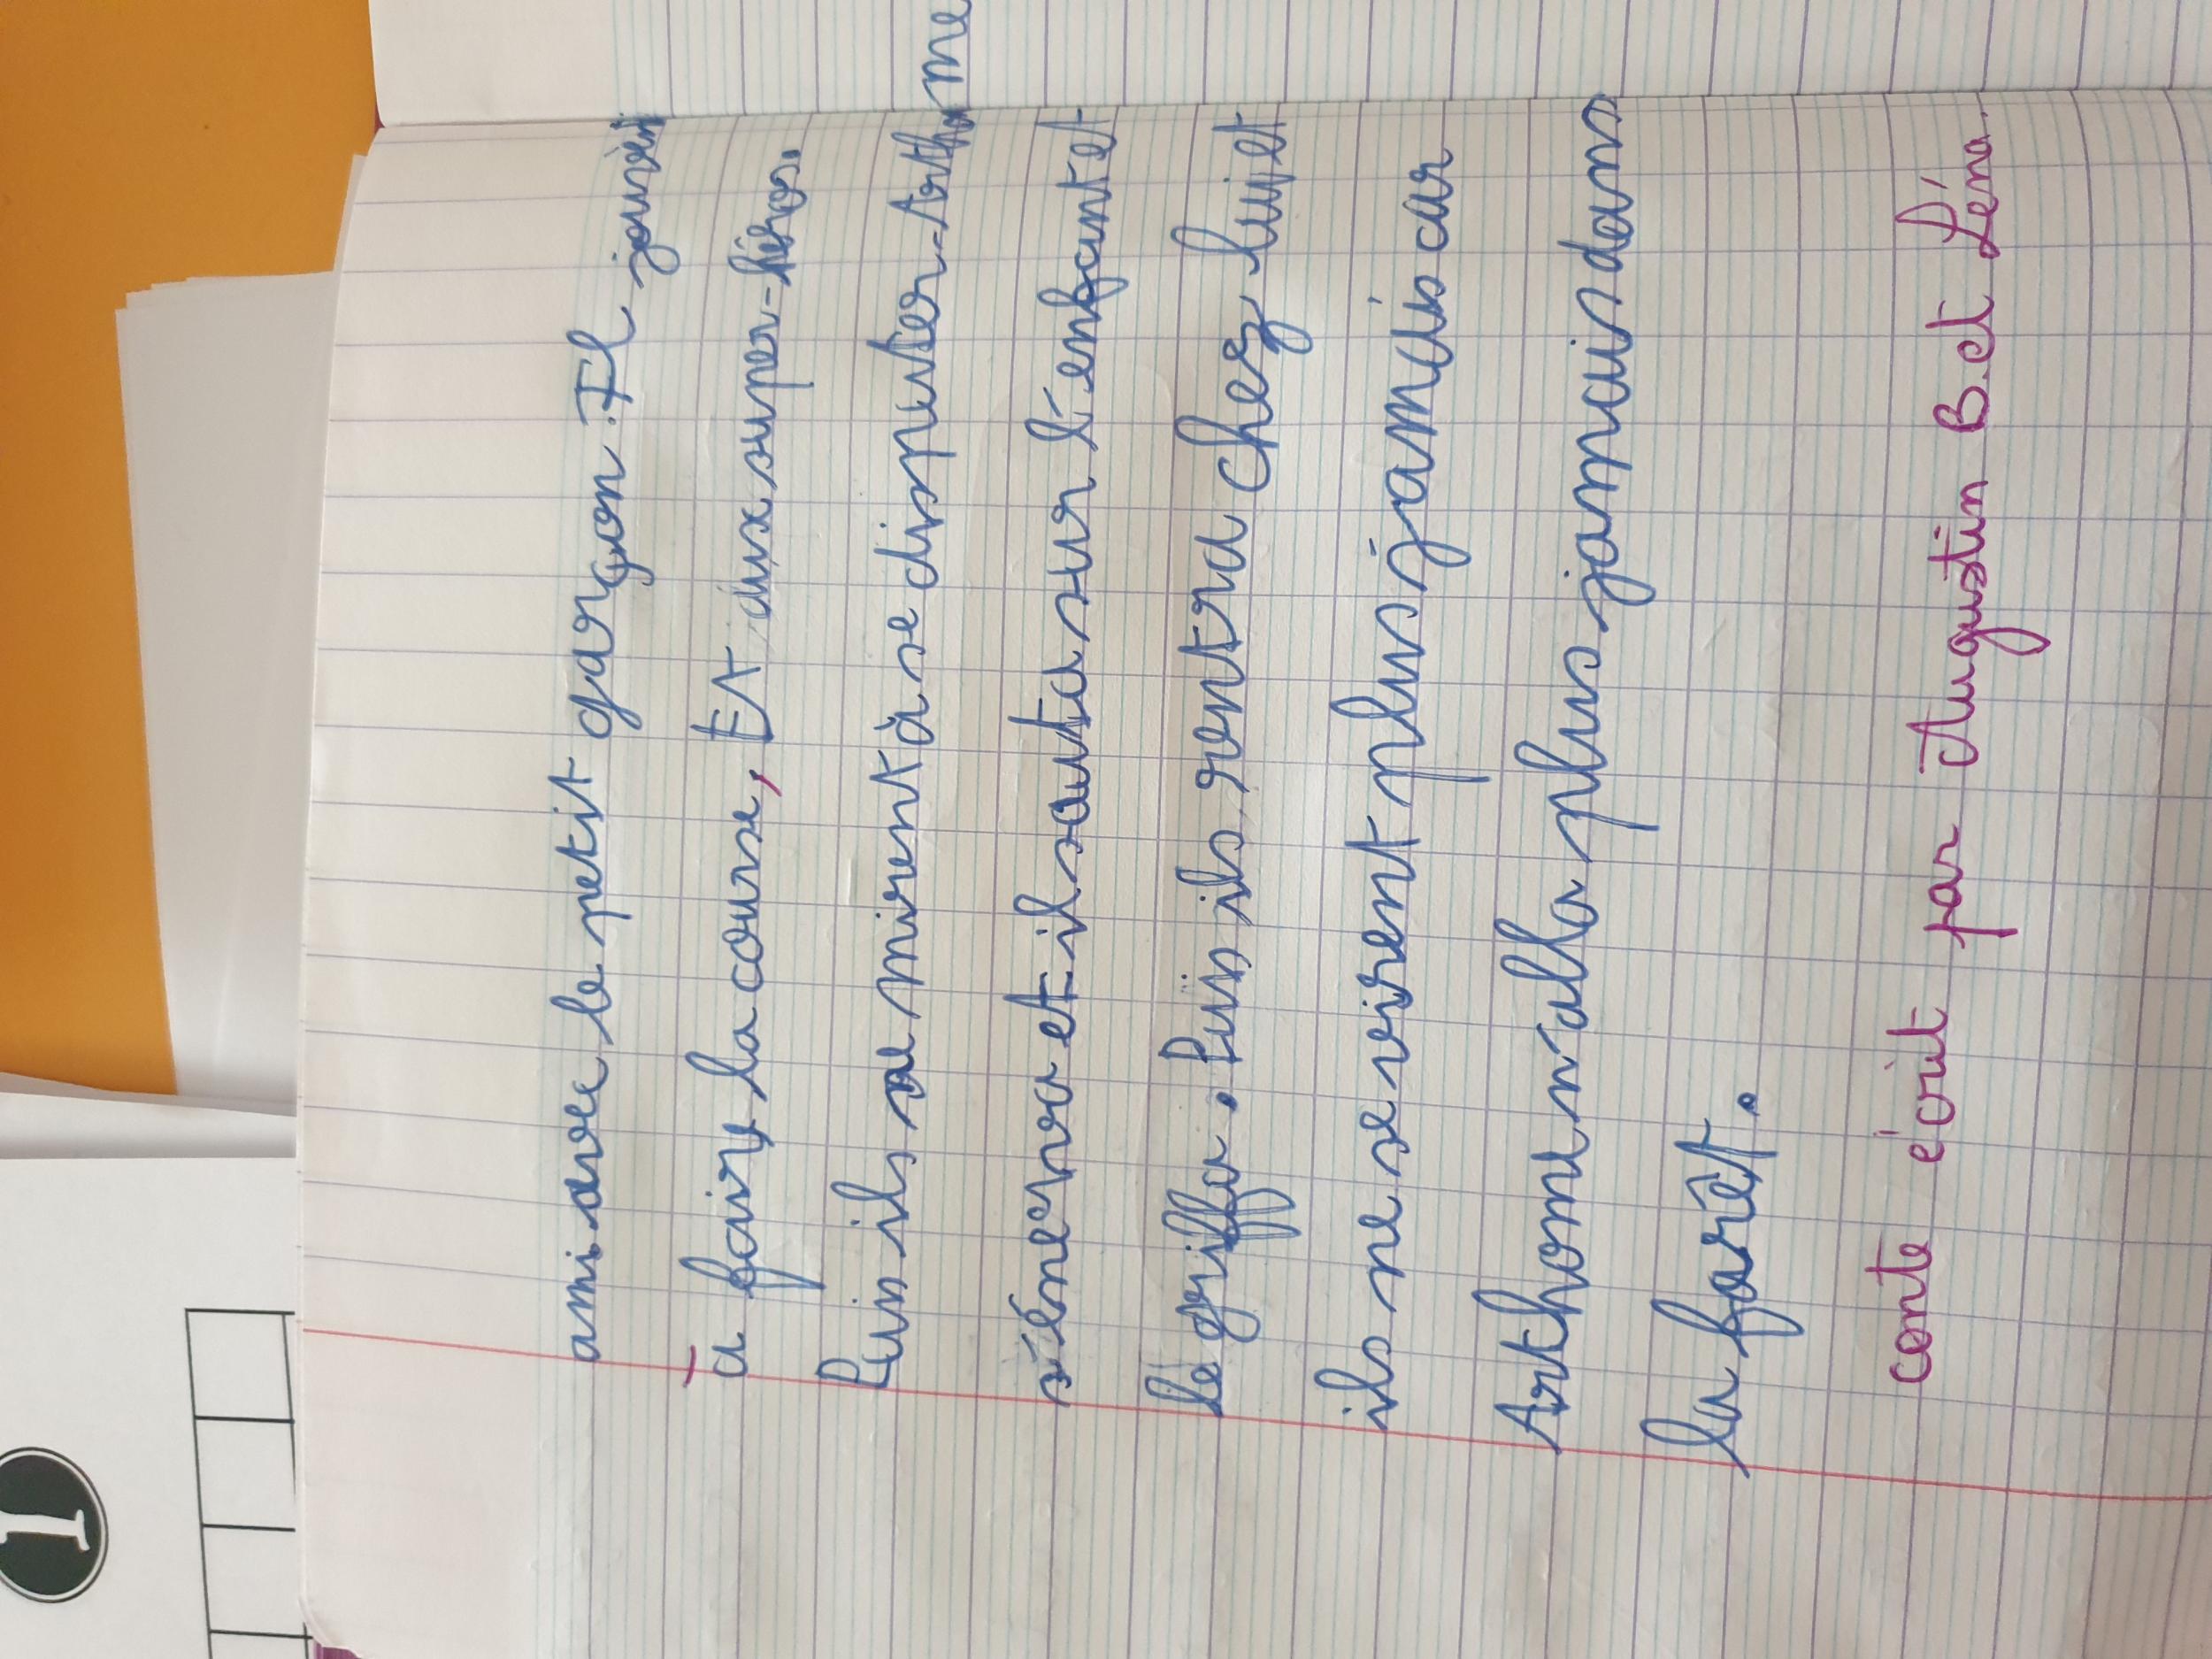 ami avec le petit garçon. Il
à faire la course, Et aux super-héros.
Puis ils se mirent à se disputer. Arthome
s'énerva et il sauta sur l'enfant et
le griffa. Puis ils rentra chez lui et
ils ne se virent plus jamais car
Arthome n'alla plus jamais dans
la forêt.
conte écrit par Augustin B. et Léna.
I